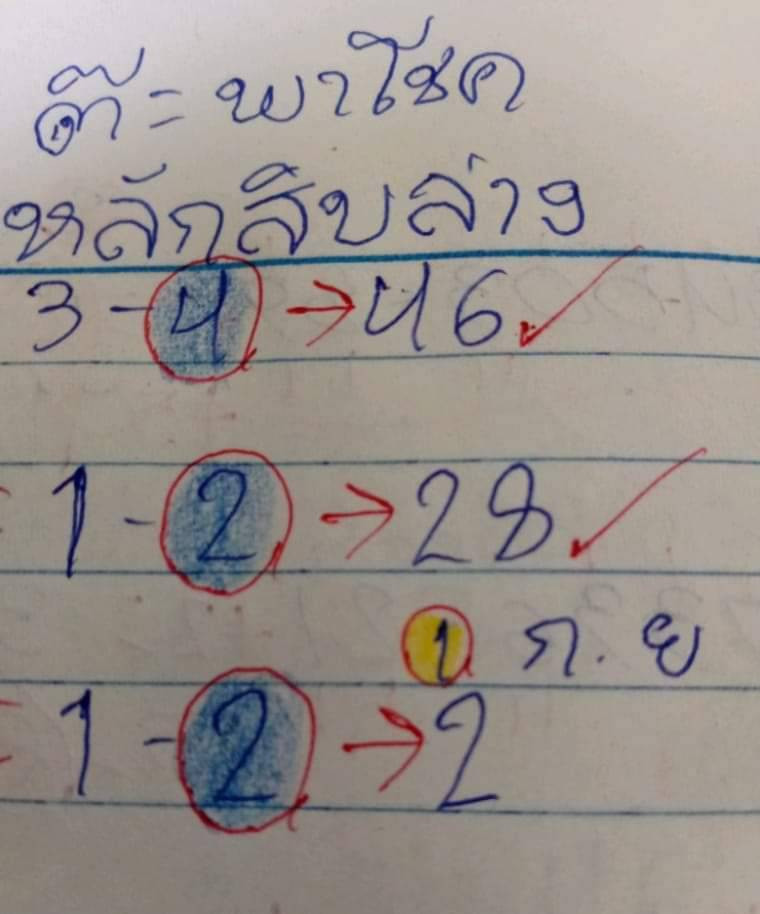 ต๊ะ พาโชค
หลักสิบล่าง
3 - 4 → 46 ✓
1 - 2 → 28 ✓
1 ก.ย
1 - 2 → 2